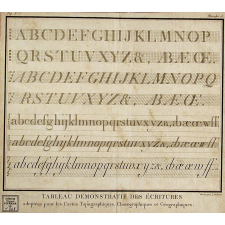 ABCDEFGHIJKLMNOP
QRSTUVXYZ&, ÆŒ.
ABCDEFGHIJKLMNOPQ
RSTUVXYZ&, ÆŒ.
abcdefghijklmnopqrstuvxyzæœwff
abcdefghijklmnopqrstuvxyzæœwff
abcdefghijklmnopqrstuvxyzæœwff
TABLEAU DÉMONSTRATIF DES ECRITURES
adoptées pour les Cartes Topographiques, Chorographiques et Géographiques.